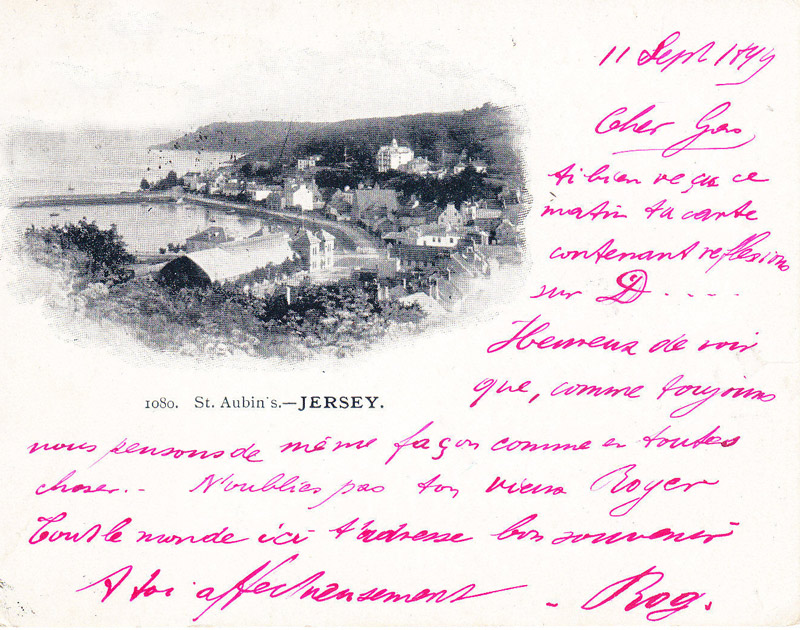 11 Sept 1899
Cher Gas
ai bien reçu ce
matin ta carte
contenant reflesions
sur D....
Heureux de voir
que, comme toujours
1080. St. Aubin's.—JERSEY.
nous pensons de même façon comme en toutes
choses.. N'oublies pas ton vieux Royer
Tout le monde ici t'adresse bon souvenir
A toi affectueusement - Rog.